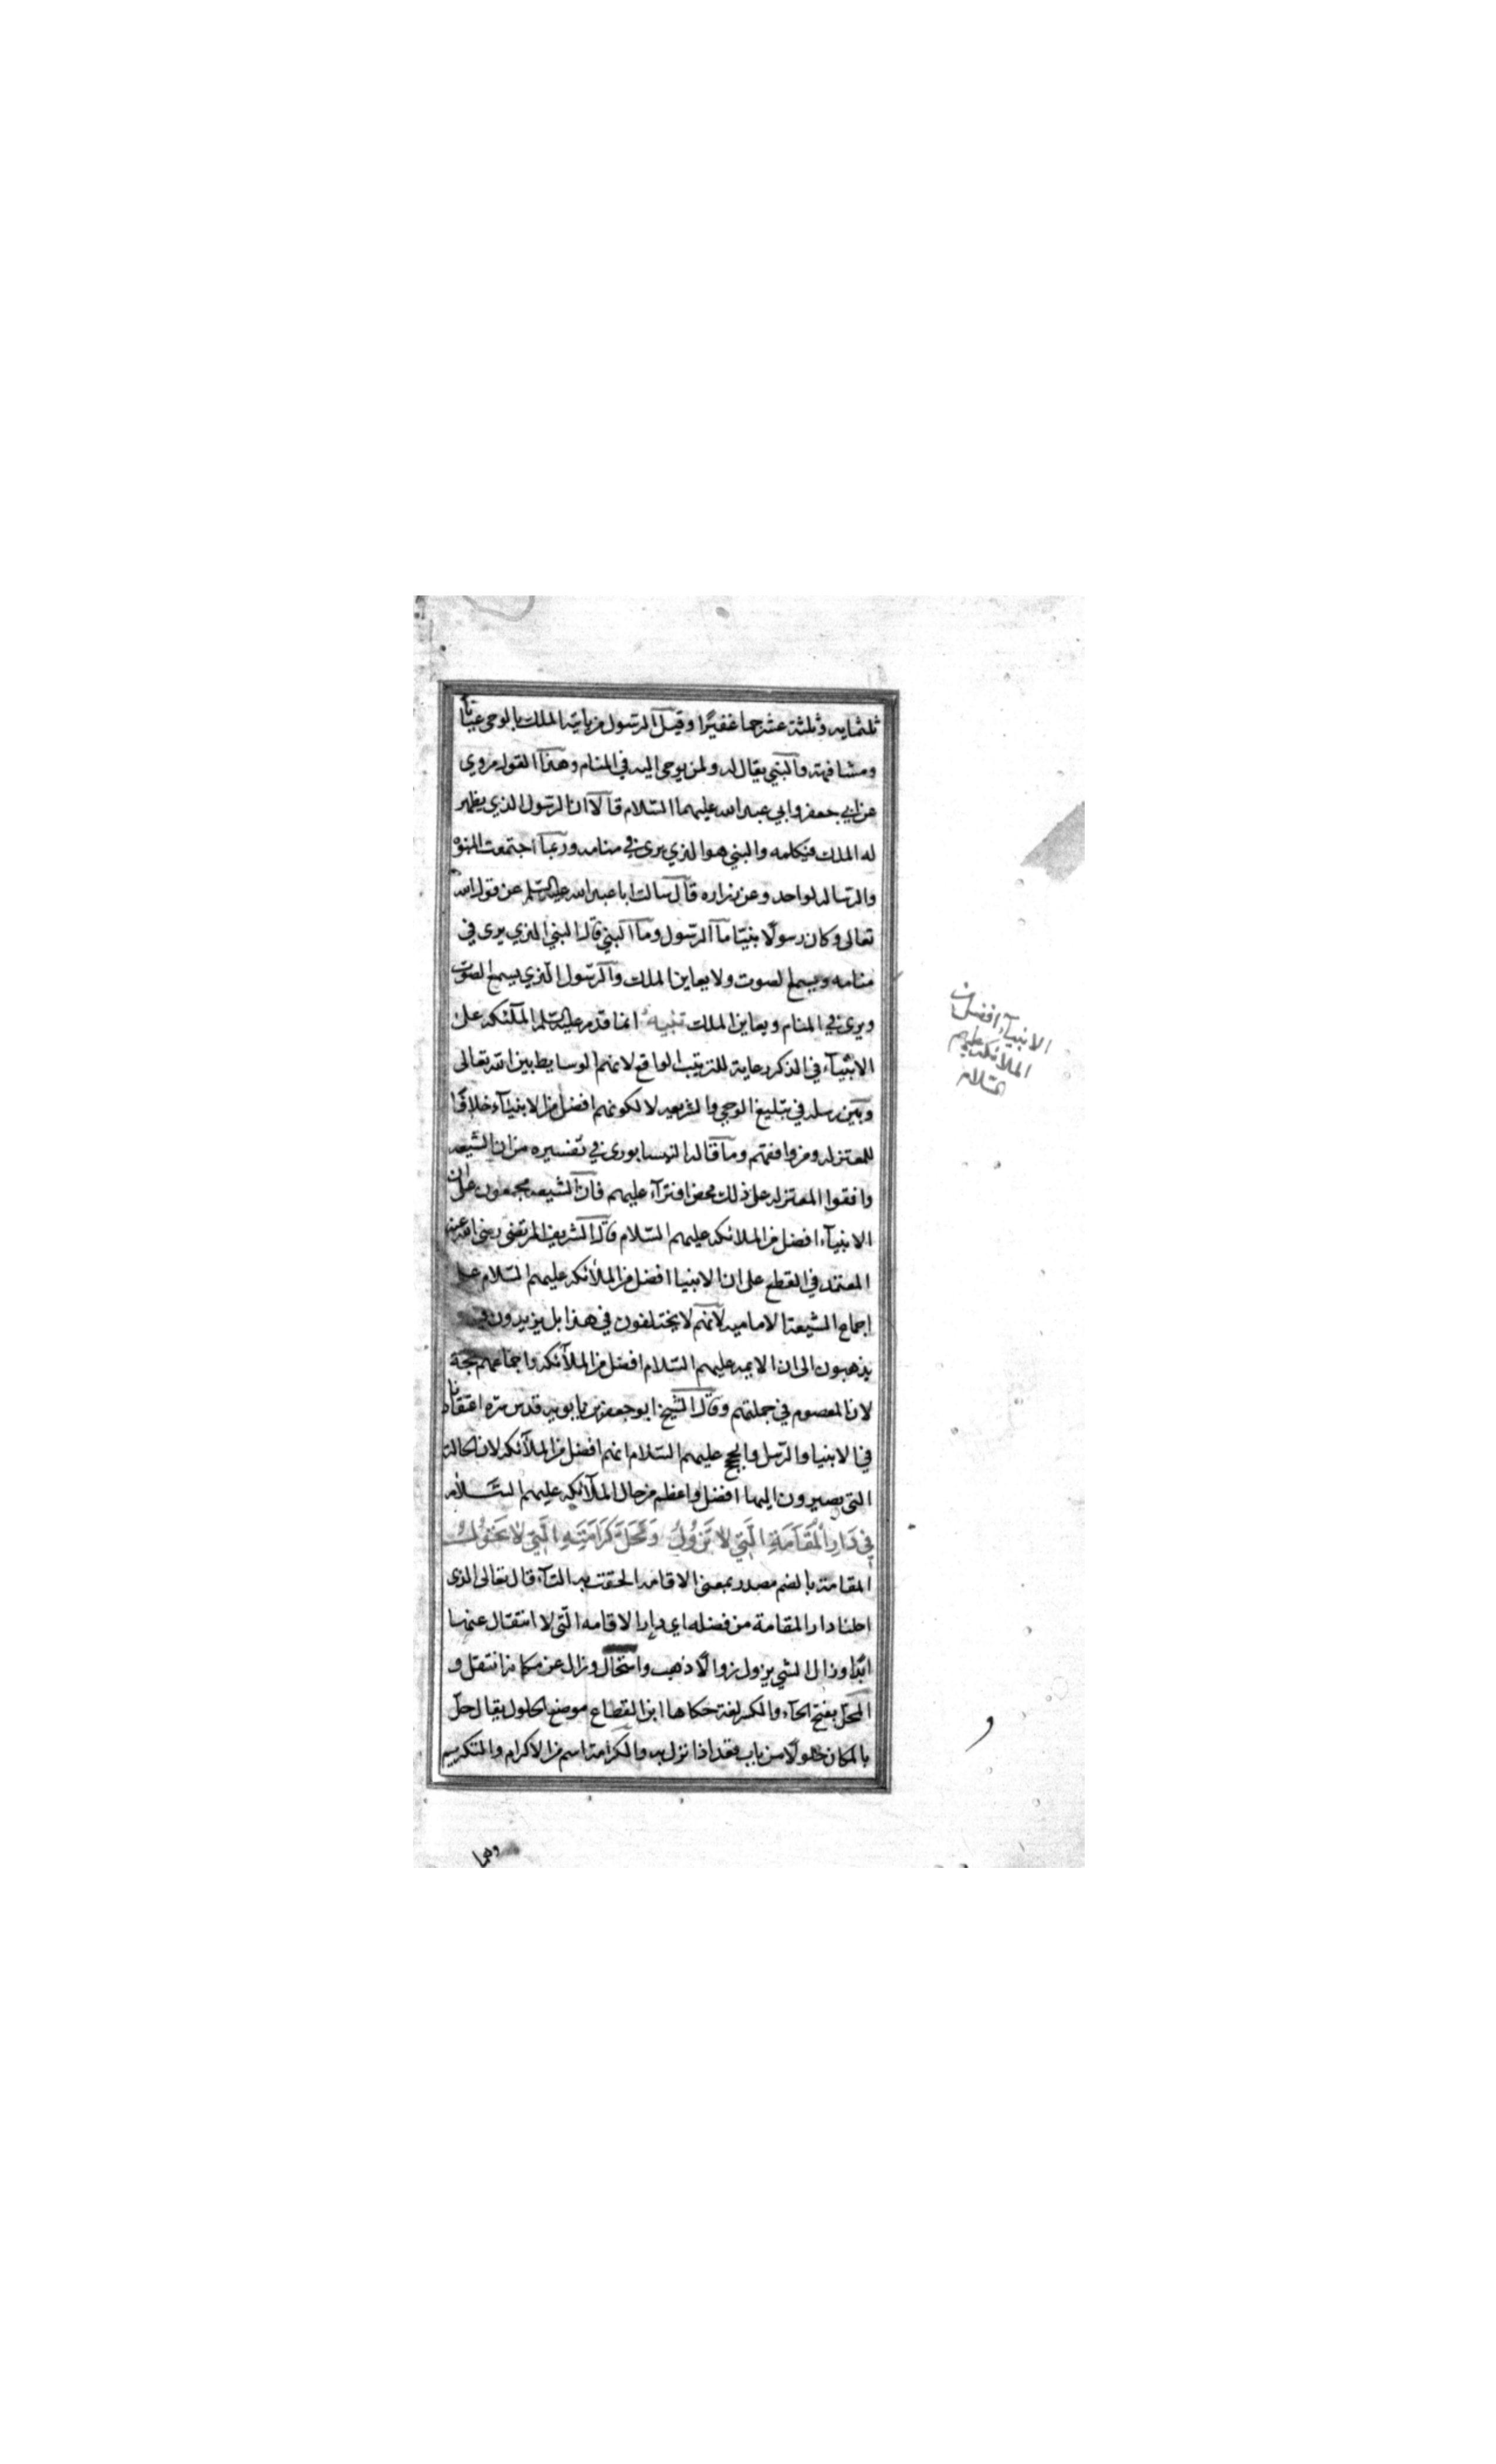 ثلثمايه وثلثة عشر جما غفيرًا وقيل الرسول من ياتيه الملك بالوحى عيانًا
ومشافهة والنبي يقال له ولمن يوحى اليه في المنام وهذا القول مروي
عن ابي جعفر وابي عبد الله عليهما السلام قالا ان الرسول الذي يظهر
له الملك فيكلمه والنبي هو الذي يرى في منامه وربما اجتمعت النبوه
والرساله لواحد وعن زراره قال سالت ابا عبد الله عليه السلم عن قول الله
تعالى وكان رسولًا نبيًا ما الرسول وما النبي قال النبي الذي يرى في
منامه ويسمع الصوت ولا يعاين الملك والرسول الذي يسمع الصوت
ويرى في المنام ويعاين الملك تنبيه انما قدم عليه السلم الملئكه على
الانبيآء في الذكر رعاية للترتيب الواقع لانهم الوسايط بين الله تعالى
وبين رسله في تبليغ الوحي والشريعه لا لكونهم افضل من الانبيآء خلافًا
للمعتزله ومن وافقهم وما قاله النيسابورى في تفسيره من ان الشيعه
وافقوا المعتزله على ذلك محض افترآء عليهم فان الشيعه مجمعون على ان
الانبيآء افضل من الملائكه عليهم السلام قال الشريف المرتضى رضى الله عنه
المعتمد في القطع على ان الانبيا افضل من الملائكه عليهم السلام على
اجماع الشيعة الاماميه لانهم لا يختلفون في هذا بل يزيدون
يذهبون الى ان الايمه عليهم السلام افضل من الملآئكه واجماعهم حجة
لان المعصوم في جملتهم وقال الشيخ ابو جعفر بن بابويه قدس سره اعتقادنا
في الانبيا والرسل والحجج عليهم السلام انهم افضل من الملآئكه لان الحالة
التى يصيرون اليها افضل واعظم من حال الملآئكه عليهم السَّلام
فِي دَارِ الْمُقَامَةِ الَّتِي لَا تَزُولُ وَمَحَلِّ كَرَامَتِهِ الَّتِي لَا تَحُولُ
المقامة بالضم مصدر بمعنى الاقامه الحقت به التآء قال تعالى الذى
احلنا دار المقامة من فضله اي دار الاقامه التى لا انتقال عنها
ابدًا وزال الشي يزول زوالًا ذهب واستحال وزال عن مكانه انتقل و
المحل بفتح الحآء والكسر لغة حكاها ابن القطاع موضع الحلول يقال حل
بالمكان حلولًا من باب قعد اذا نزل به والكرامة اسم من الاكرام والتكريم
وهما
الانبيآء افضل من
الملائكة عليهم
السلام
و